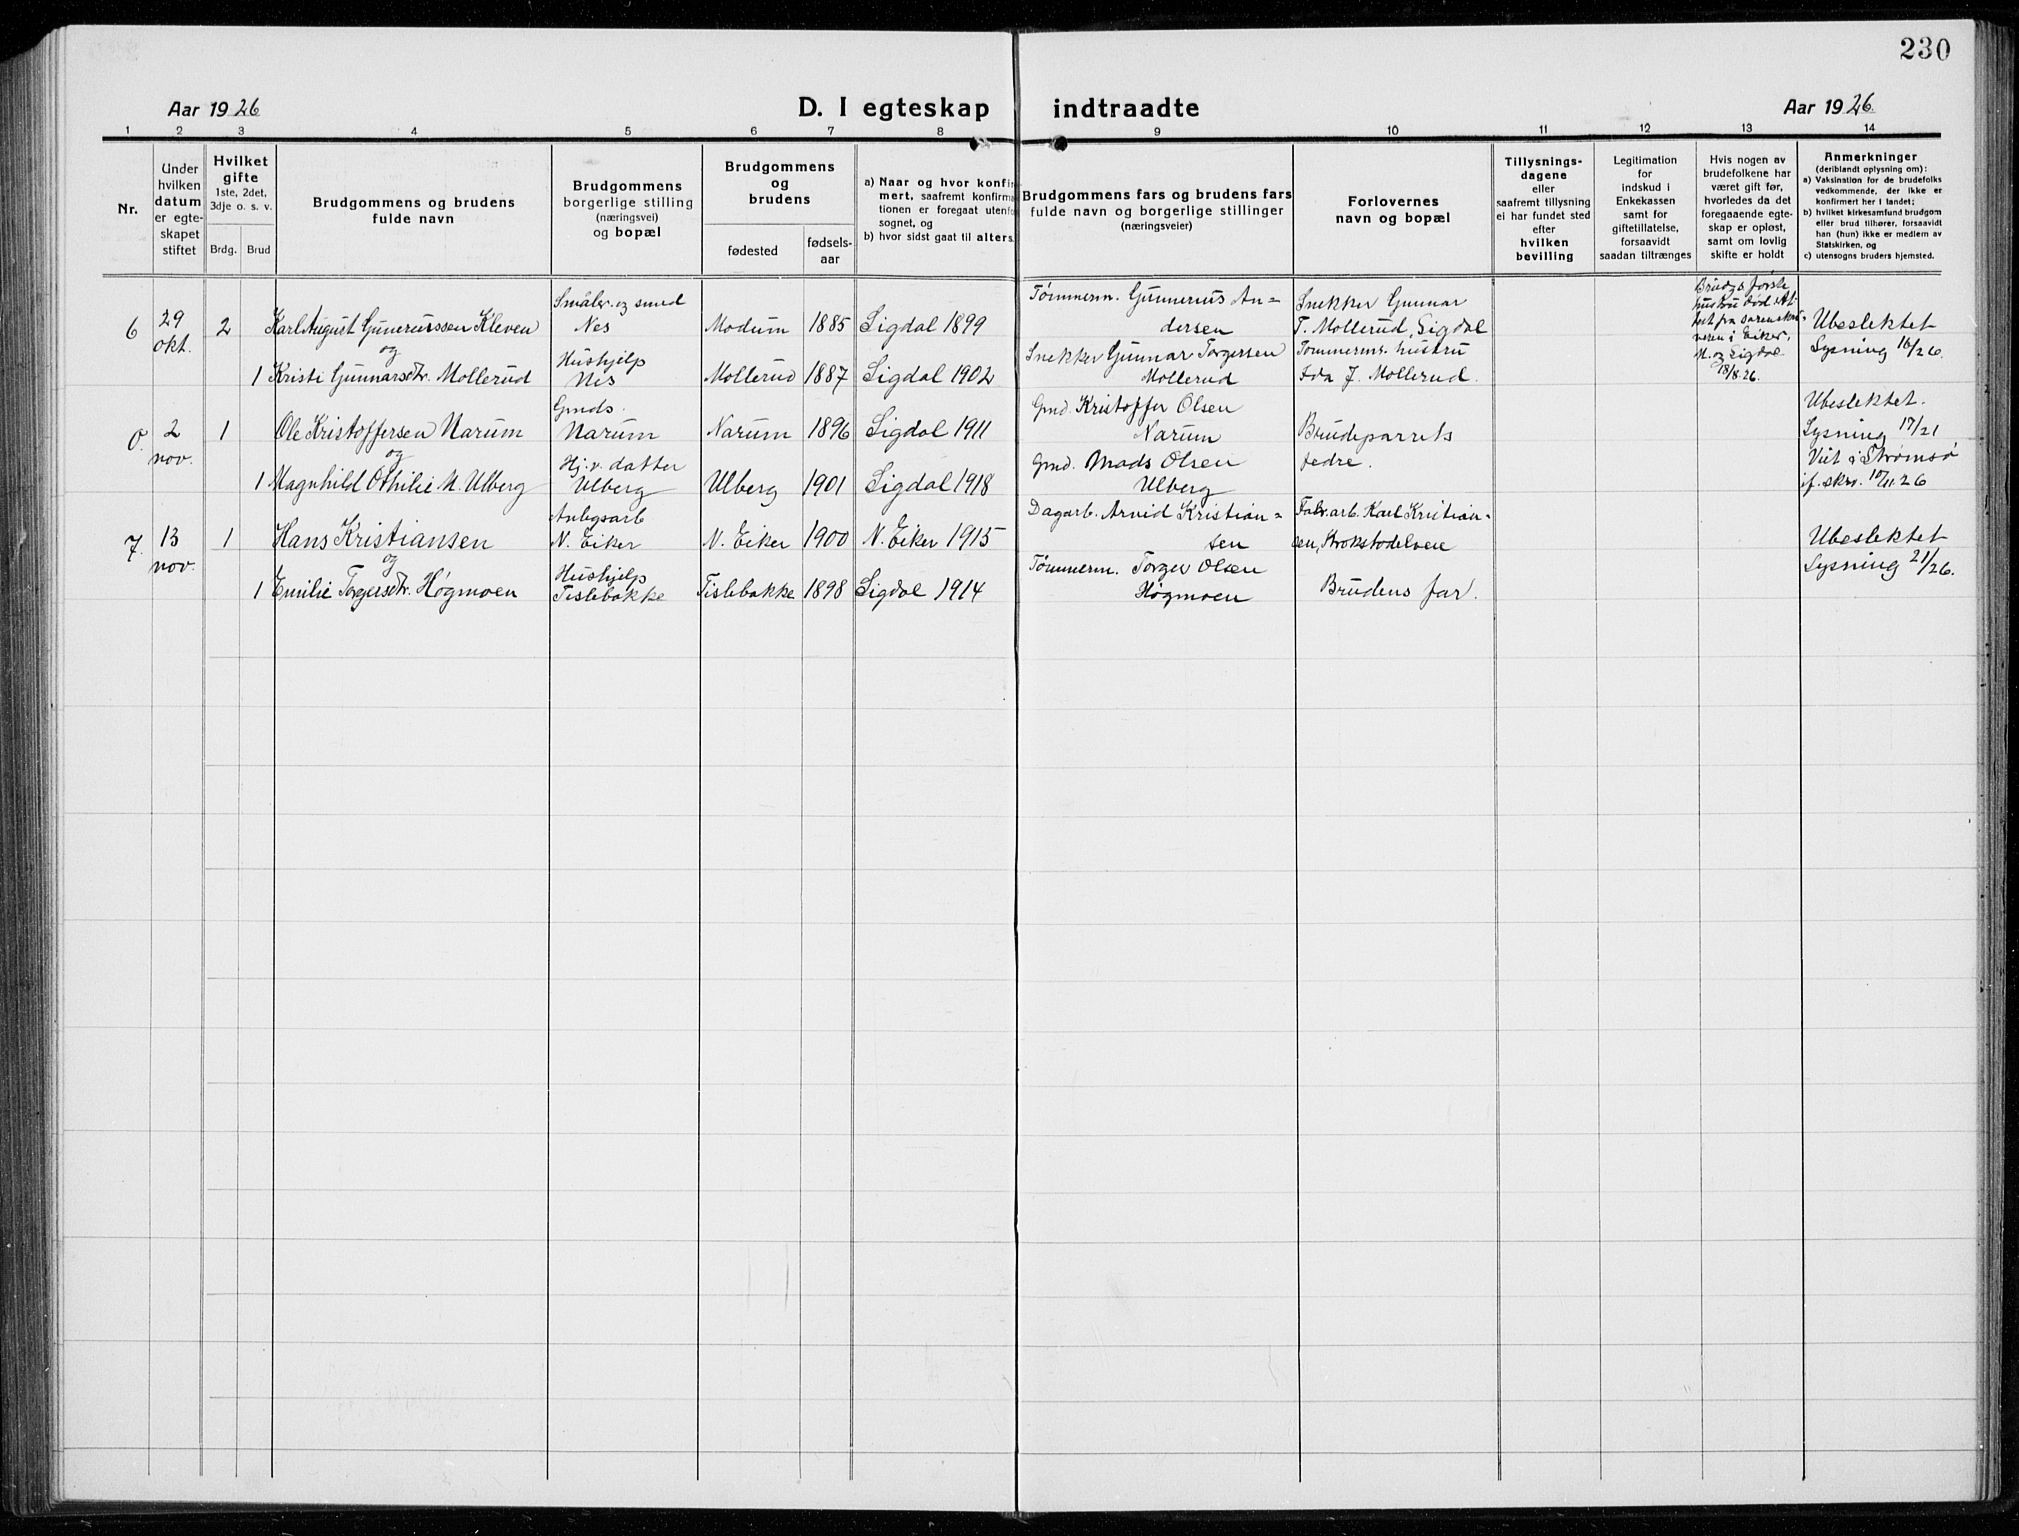 230
Aar 1926
D. I egteskap indtraadte
Aar 1926.
1 2 3 4 5 6 7 8 9 10 11 12 13 14
Nr.
Under
hvilken
datum
er egte-
skapet
stiftet
Hvilket
gifte
1ste, 2det,
3dje o. s. v.
Brdg. Brud
Brudgommens og brudens
fulde navn
Brudgommens
borgerlige stilling
(næringsvei)
og bopæl
Brudgommens
og
brudens
fødested
fødsels-
aar
a) Naar og hvor konfir
mert, saafremt konfirma
tionen er foregaat utenfo
sognet, og
b) hvor sidst gaat til alters.
Brudgommens fars og brudens fars
fulde navn og borgerlige stillinger
(næringsveier)
Forlovernes
navn og bopæl
Tillysnings-
dagene
eller
saafremt tillysning
ei har fundet sted
efter
hvilken
bevilling
Legitimation
for
indskud i
Enkekassen
samt for
giftetillatelse,
forsaavidt
saadan tiltrænges
Hvis nogen av
brudefolkene har
været gift før,
hvorledes da det
foregaaende egte-
skap er opløst,
samt om lovlig
skifte er holdt
Anmerkninger
(deriblandt oplysning om):
a) Vaksination for de brudefolks
vedkommende, der ikke er
konfirmert her i landet;
b) hvilket kirkesamfund brudgom
eller brud tilhører, forsaavidt
han (hun) ikke er medlem av
Statskirken, og
c) utensogns bruders hjemsted.
6
29
okt.
2
Karl August Gunerussen Kleven
og
Smålbr. og smed
Nes
Modum
1885
Sigdal 1899
Tømmerm. Gunnerius An=
dersen
Snekker Gunnar
T. Mollerud, Sigdal
Brudg.s første
hustru død. At-
test fra sorenskri-
veren i Eiker,
M. og Sigdal
18/8 26.
Ubeslektet
Lysning 16/26.
1
Kristi Gunnarsdtr. Mollerud
Hushjelp
Nes
Mollerud
1887
Sigdal 1902
Snekker Gunnar Torgersen
Mollerud
Tømmerms. hustru
Ida J. Mollerud.
0.
2
nov.
1
Ole Kristoffersen Narum
og
Gmds.
Narum
Narum
1896
Sigdal 1911
Gmd. Kristoffer Olsen
Narum
Brudeparrets
fedre.
Ubeslektet.
Lysning 17/21
Viet i Strømsø
if. skr. 10/11.26
1
Magnhild Othilie M. Ulberg
Hj.v. datter
Ulberg
Ulberg
1901
Sigdal 1918
Gmd. Mads Olsen
Ulberg
7.
13
nov.
1
Hans Kristiansen
og
Anlegsarb
N. Eiker
N. Eiker
1900
N. Eiker 1915
Dagarb. Arvid Kristian=
sen
Fabr.arb. Karl Kristian-
sen,
Ubeslektet
Lysning 21/26.
1
Emilie Torgersdtr. Høgmoen
Hushjelp
Tislebakke
Tislebakke
1898
Sigdal 1914
Tømmerm. Torger Olsen
Høgmoen
Brudens far.